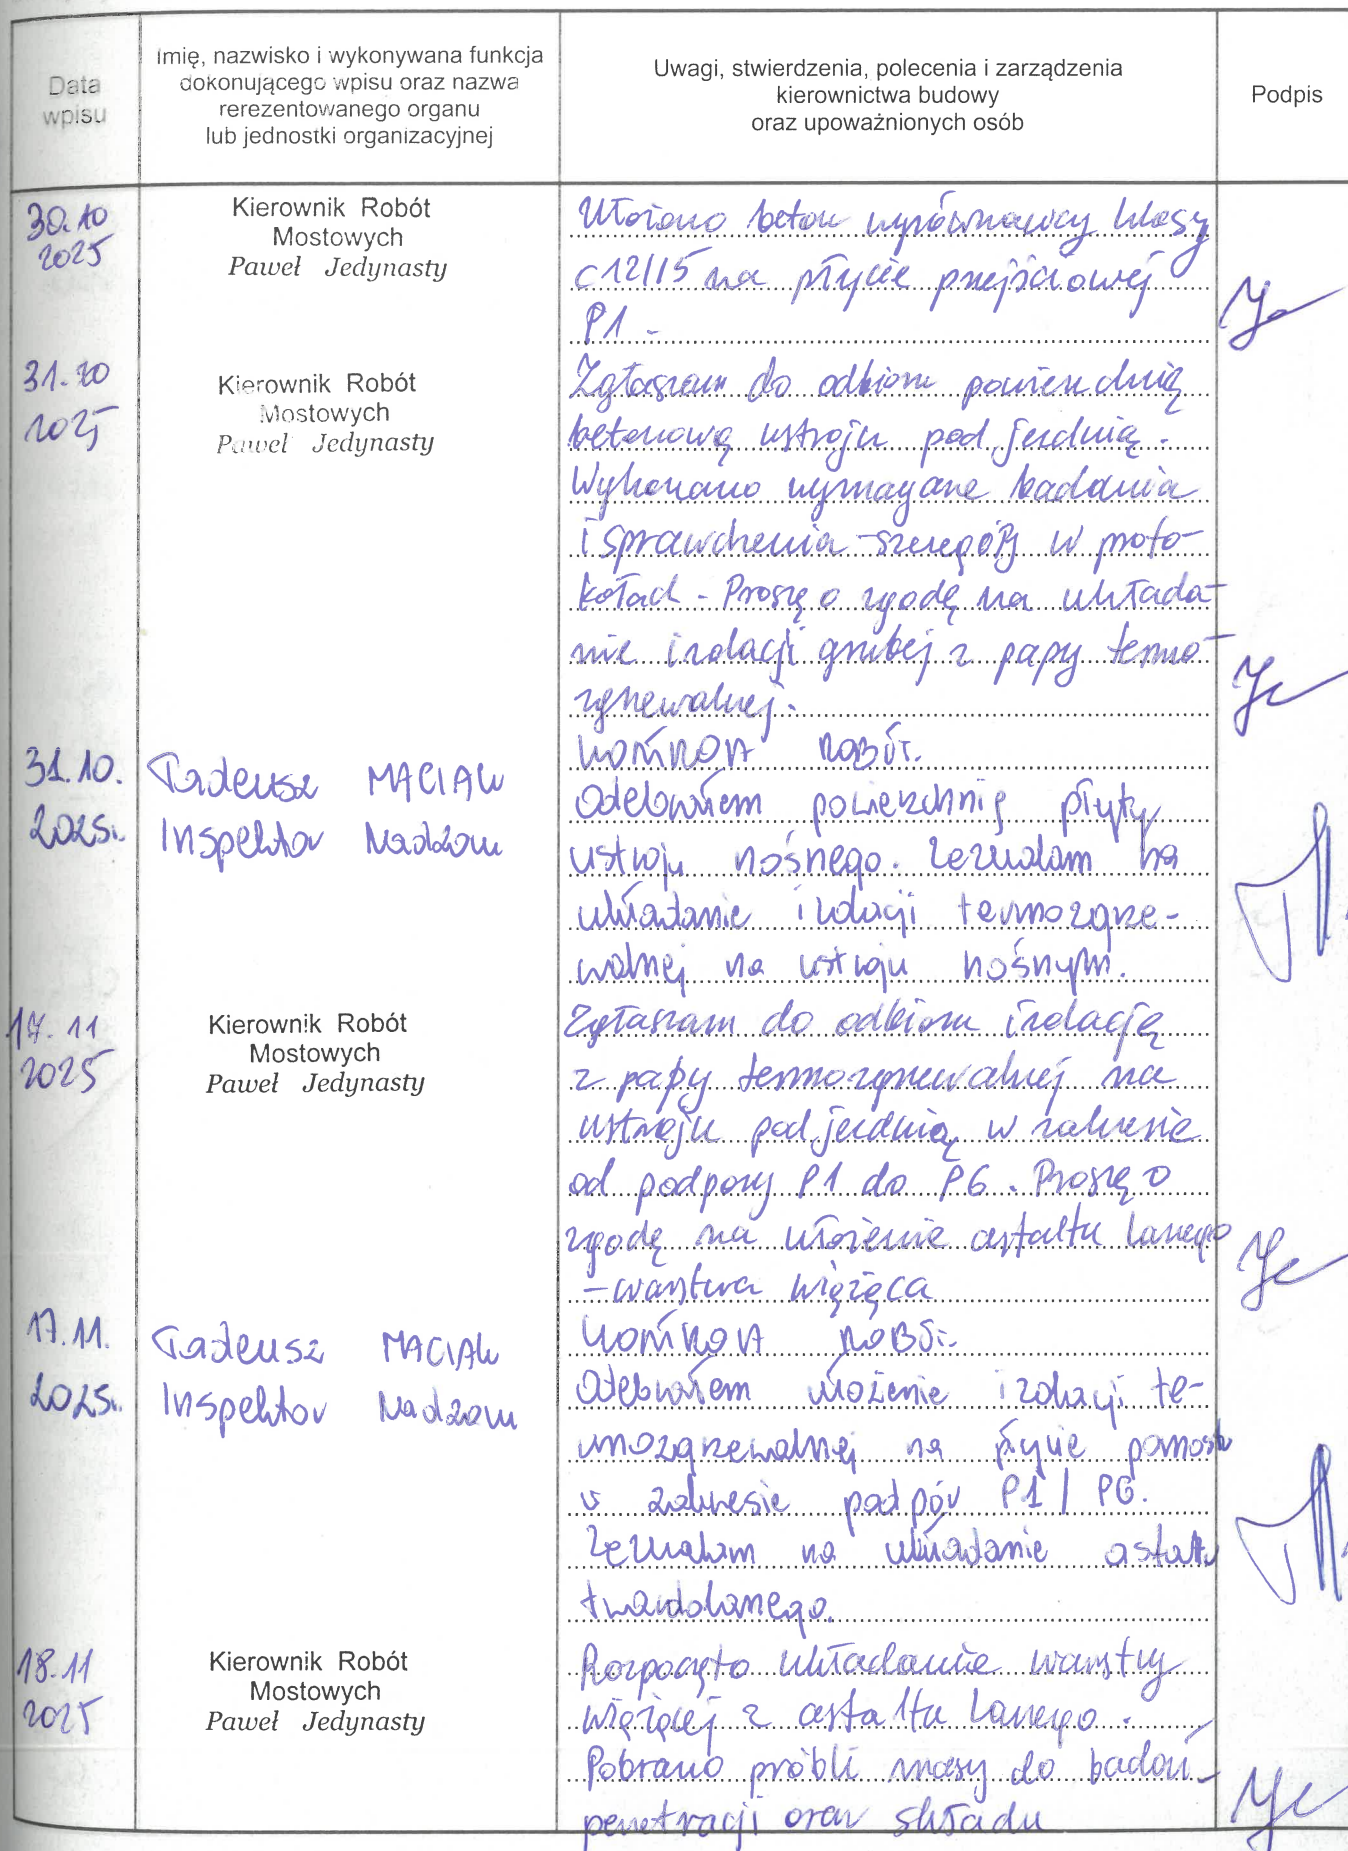 Data
wpisu
Imię, nazwisko i wykonywana funkcja
dokonującego wpisu oraz nazwa
rerezentowanego organu
lub jednostki organizacyjnej
Uwagi, stwierdzenia, polecenia i zarządzenia
kierownictwa budowy
oraz upoważnionych osób
Podpis
30.10
2025
Kierownik Robót
Mostowych
Paweł Jedynasty
Ułożono beton wyrównawczy klasy
C12/15 na płycie przejściowej
P1 -
31.10
2025
Kierownik Robót
Mostowych
Paweł Jedynasty
Zgłaszam do odbioru powierzchnię
betonową ustroju pod jezdnią.
Wykonano wymagane badania
i sprawdzenia - szczegóły w proto-
kołach - Proszę o zgodę na układa-
nie izolacji grubej z papy termo-
zgrzewalnej.
31.10.
2025r.
Tadeusz MACIAK
Inspektor Nadzoru
KONTROLA ROBÓT.
Odebrałem powierzchnię płyty
ustroju nośnego. Zezwalam na
układanie izolacji termozgrze-
walnej na ustroju nośnym.
17.11
2025
Kierownik Robót
Mostowych
Paweł Jedynasty
Zgłaszam do odbioru izolację
z papy termozgrzewalnej na
ustroju pod jezdnią w zakresie
od podpory P1 do P6. Proszę o
zgodę na ułożenie asfaltu lanego
- warstwa wiążąca
17.11.
2025r.
Tadeusz MACIAK
Inspektor Nadzoru
KONTROLA ROBÓT.
Odebrałem ułożenie izolacji te-
rmozgrzewalnej na płycie pomostu
w zakresie podpór P1 / P6.
Zezwalam na układanie asfaltu
twardolanego.
18.11
2025
Kierownik Robót
Mostowych
Paweł Jedynasty
Rozpoczęto układanie warstwy
wiążącej z asfaltu lanego.
Pobrano próbki masy do badań
penetracji oraz składu